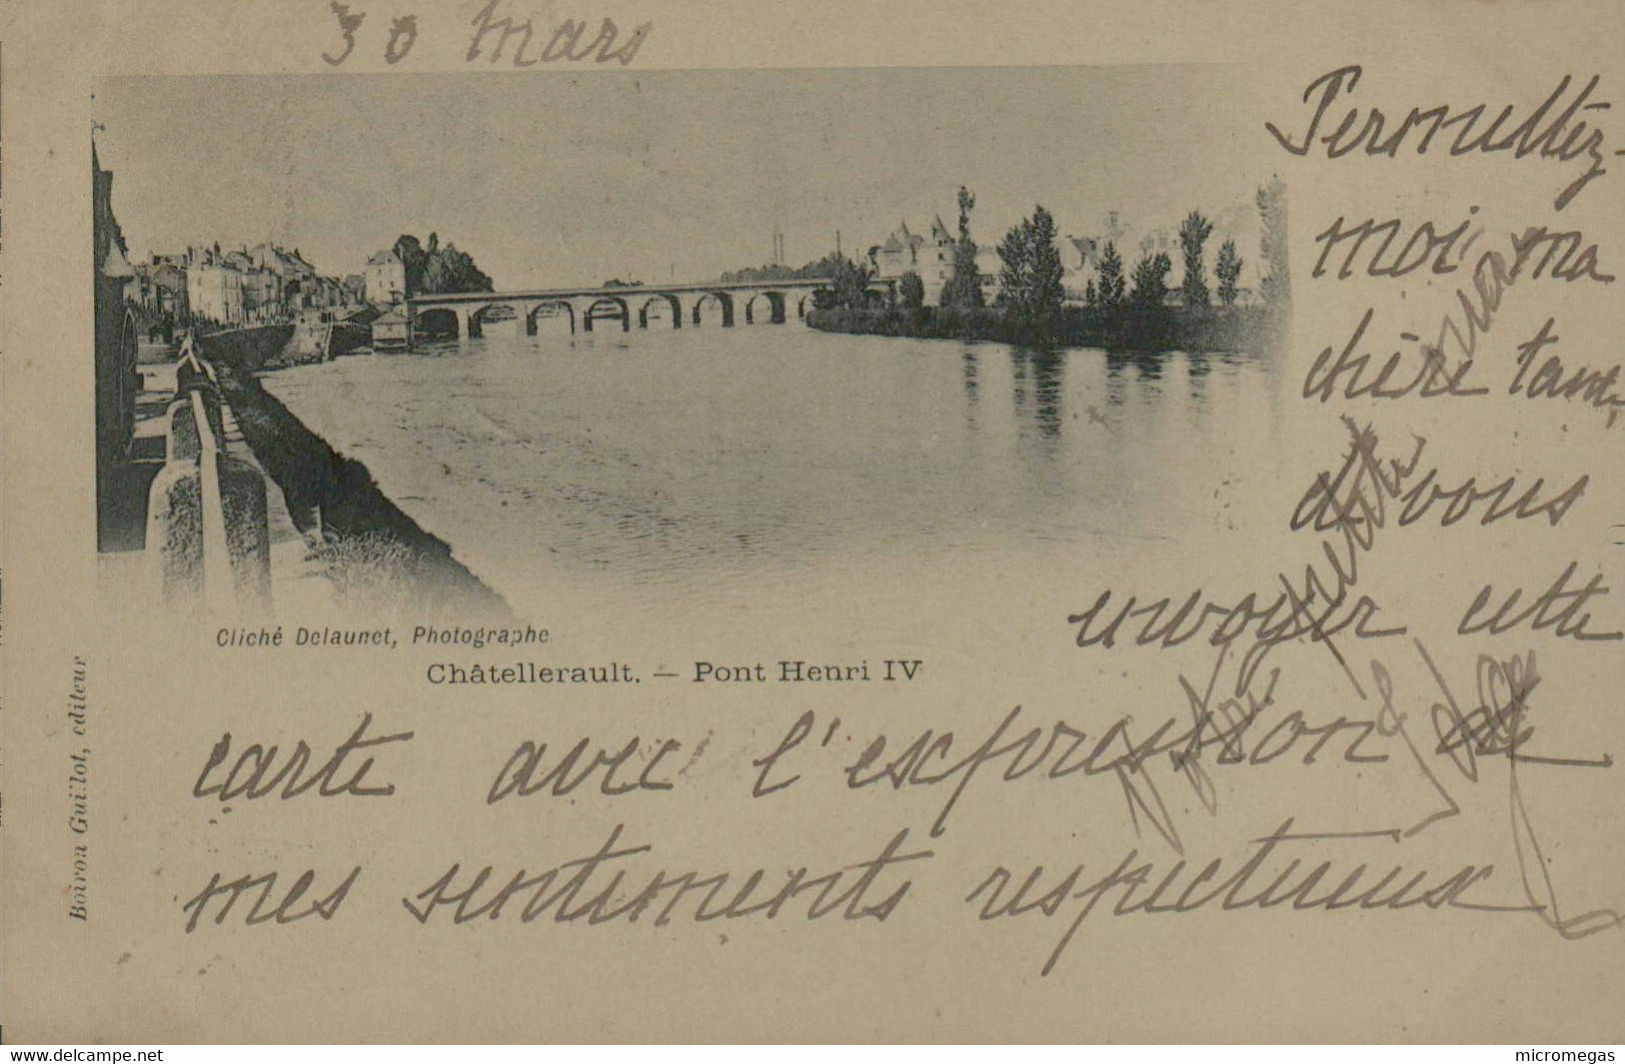 30 mars
Permettez-
moi ma
chère tante
de vous
envoyer cette
carte avec l'expression de
mes sentiments respectueux
Cliché Delaunet, Photographe
Châtellerault. — Pont Henri IV
Boiron Guillot, editeur
www.delcampe.net
micromegas